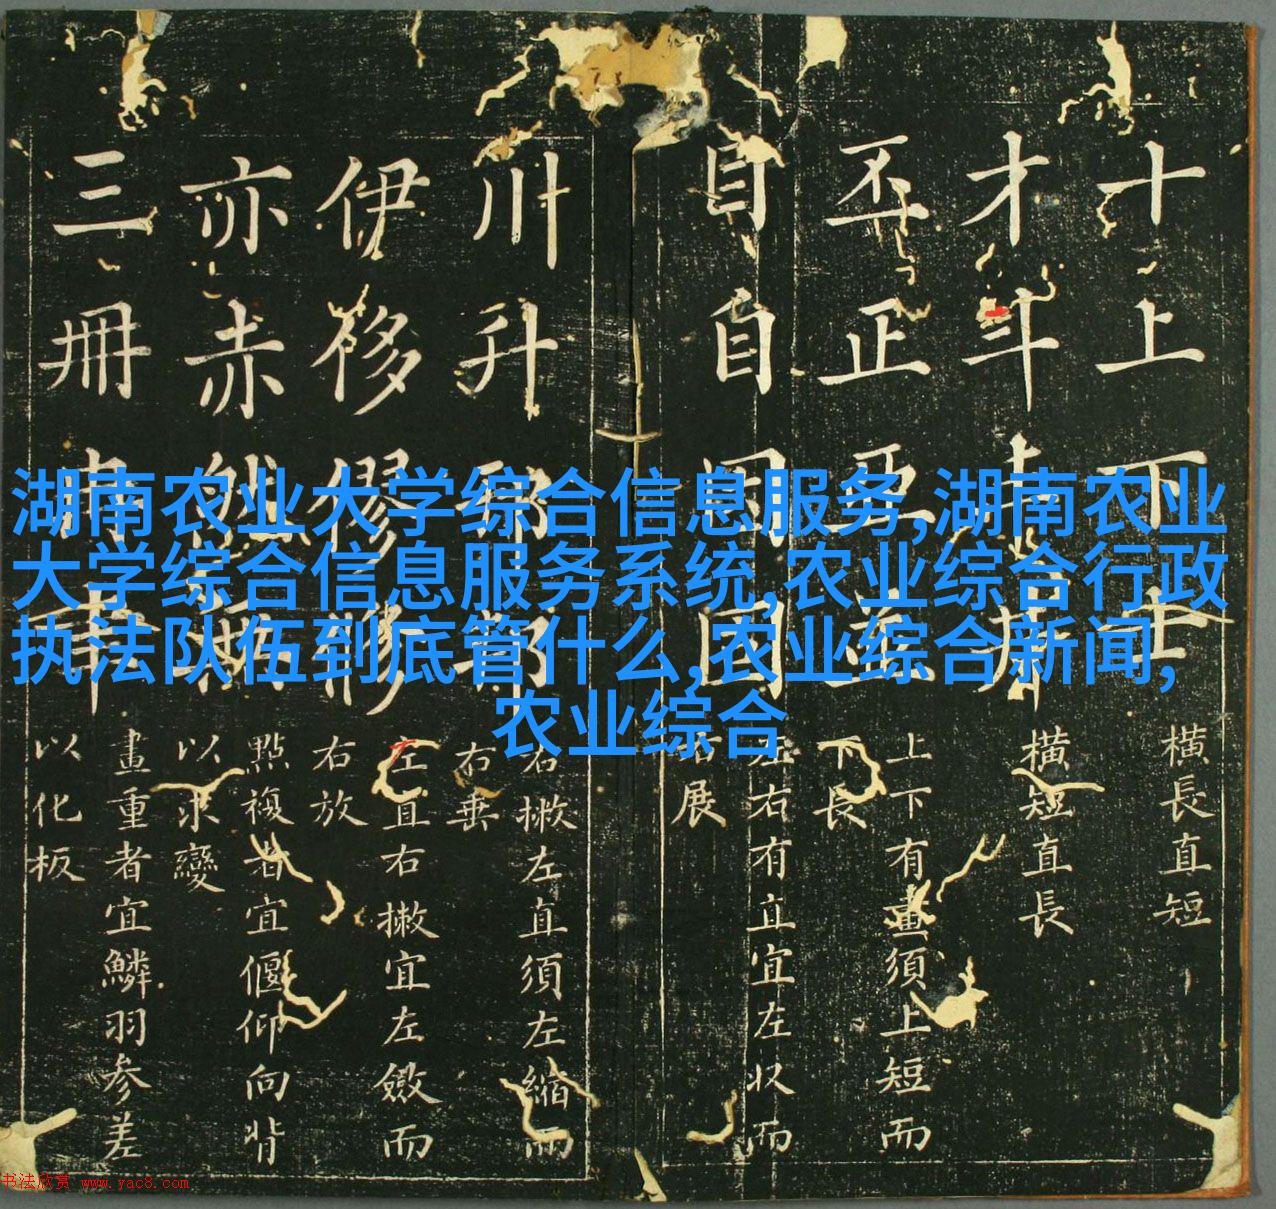 十上下士
才斗
丕正亞並
目自固因
川升邪
伊侈修
亦赤然無
三冊
橫長直短
橫短直長
上下有畫須上短而
下長
左右有直宜左收而
右展
右撇左直須左縮而
右垂
左直右撇宜左斂而
右放
點複者宜偃仰向背
以求變
畫重者宜鱗羽參差
以化板
湖南农业大学综合信息服务,湖南农业
大学综合信息服务系统,农业综合行政
执法队伍到底管什么,农业综合新闻,
农业综合
书法欣赏 www.yac8.com